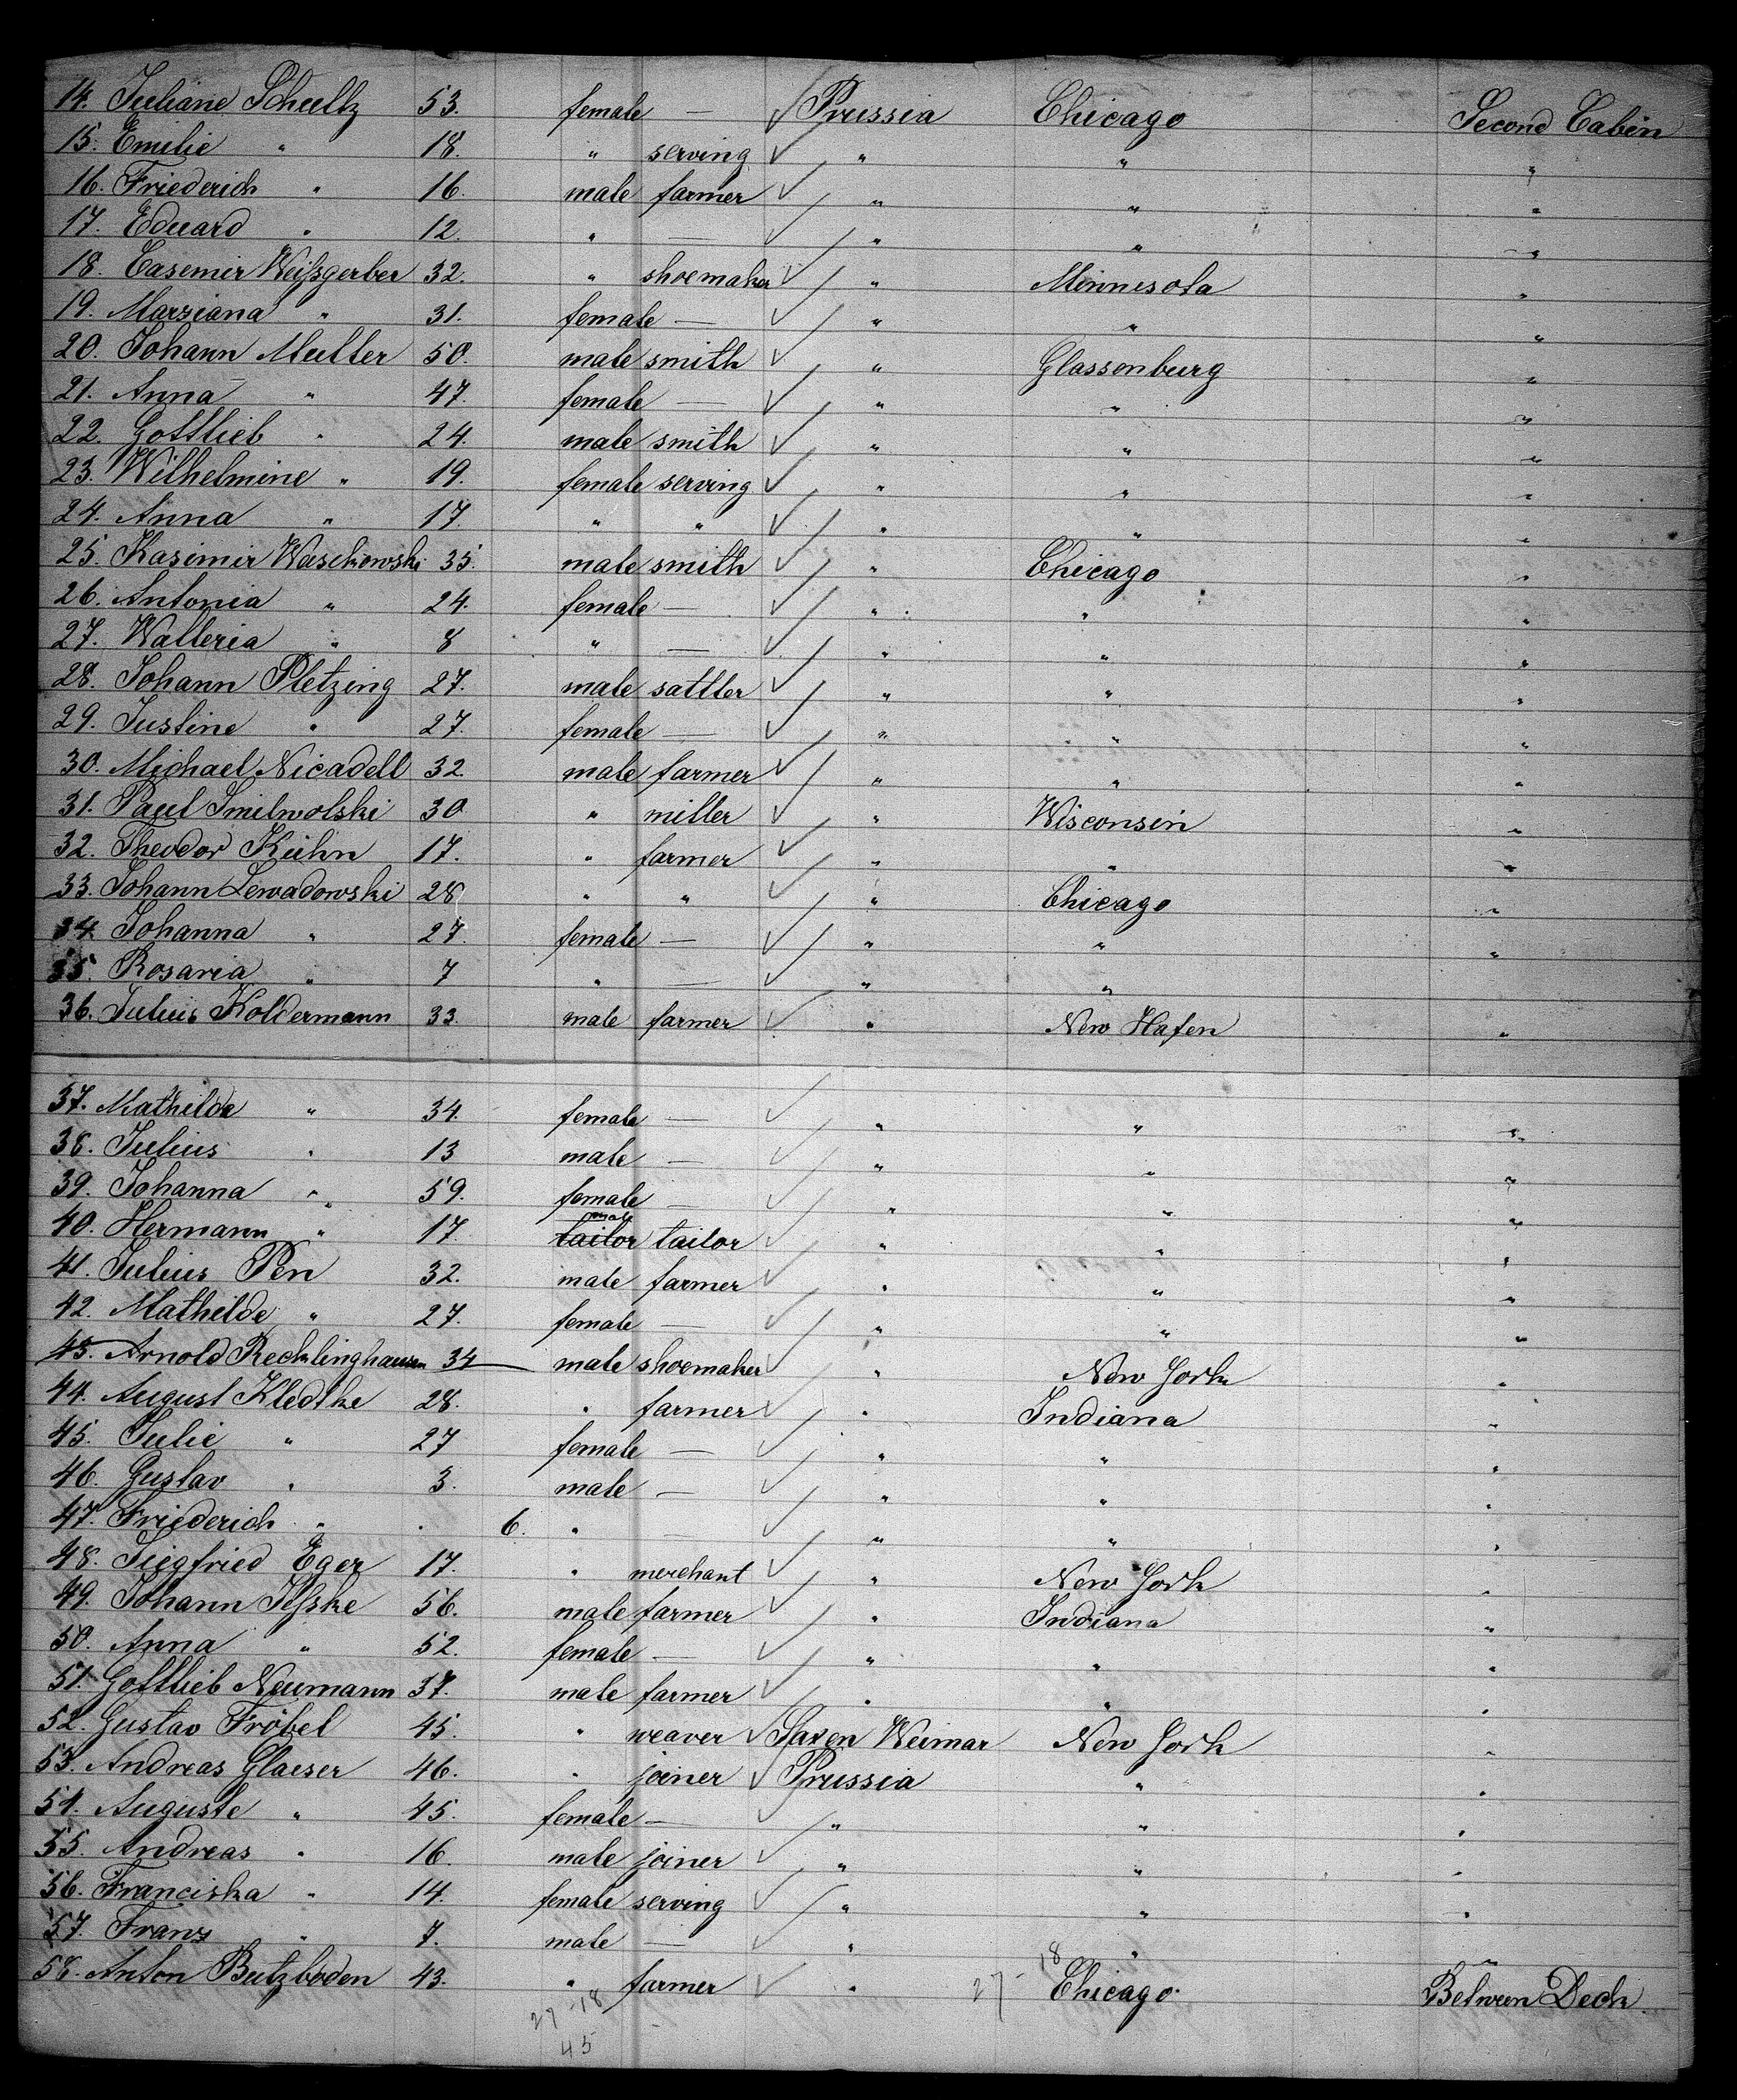 14. Juliane Schultz 53. female — Prussia Chicago Second Cabin
15. Emilie " 18. " serving " " "
16. Friederich " 16. male farmer " " "
17. Eduard " 12. " — " " "
18. Casemir Weißgerber 32. " shoemaker " Minnesota "
19. Marziana " 31. female — " " "
20. Johann Muller 50. male smith " Glassenburg "
21. Anna " 47. female — " " "
22. Gottlieb " 24. male smith " " "
23. Wilhelmine " 19. female serving " " "
24. Anna " 17. " " " " "
25. Kasimir Waschowski 35. male smith " Chicago "
26. Antonia " 24. female — " " "
27. Walleria " 8 " — " " "
28. Johann Pletzing 27. male sattler " " "
29. Justine " 27. female — " " "
30. Michael Nicadell 32. male farmer " " "
31. Paul Smilwolski 30 " miller " Wisconsin "
32. Theodor Kühn 17. " farmer " " "
33. Johann Lewadowski 28 " " " Chicago "
34. Johanna " 27. female — " " "
35. Rosaria " 7 " — " " "
36. Julius Koldermann 33. male farmer " New Hafen "
37. Mathilde " 34. female — " " "
38. Julius " 13 male — " " "
39. Johanna " 59. female — " " "
male
40. Hermann " 17 tailor tailor " " "
41. Julius Pen 32. male farmer " " "
42. Mathilde " 27. female — " " "
43. Arnold Recklinghausen 34 male shoemaker " New York "
44. August Kledtke 28. " farmer " Indiana "
45. Julie " 27 female — " " "
46. Gustav " 3. male — " " "
47. Friederich " . 6. " — " " "
48. Siegfried Eger 17. " merchant " New York "
49. Johann Jeßke 56. male farmer " Indiana "
50. Anna " 52. female — " " "
51. Gottlieb Neumann 37. male farmer " " "
52. Gustav Fröbel 45. " weaver Saxen Weimar New York "
53. Andreas Glaeser 46. " joiner Prussia " "
54. Auguste " 45. female — " " "
55. Andreas " 16. male joiner " " "
56. Franciska " 14. female serving " " "
57. Franz " 7. male — " " "
58. Anton Butzboden 43. " farmer " 27-18 Chicago. Between Deck.
27-18
45